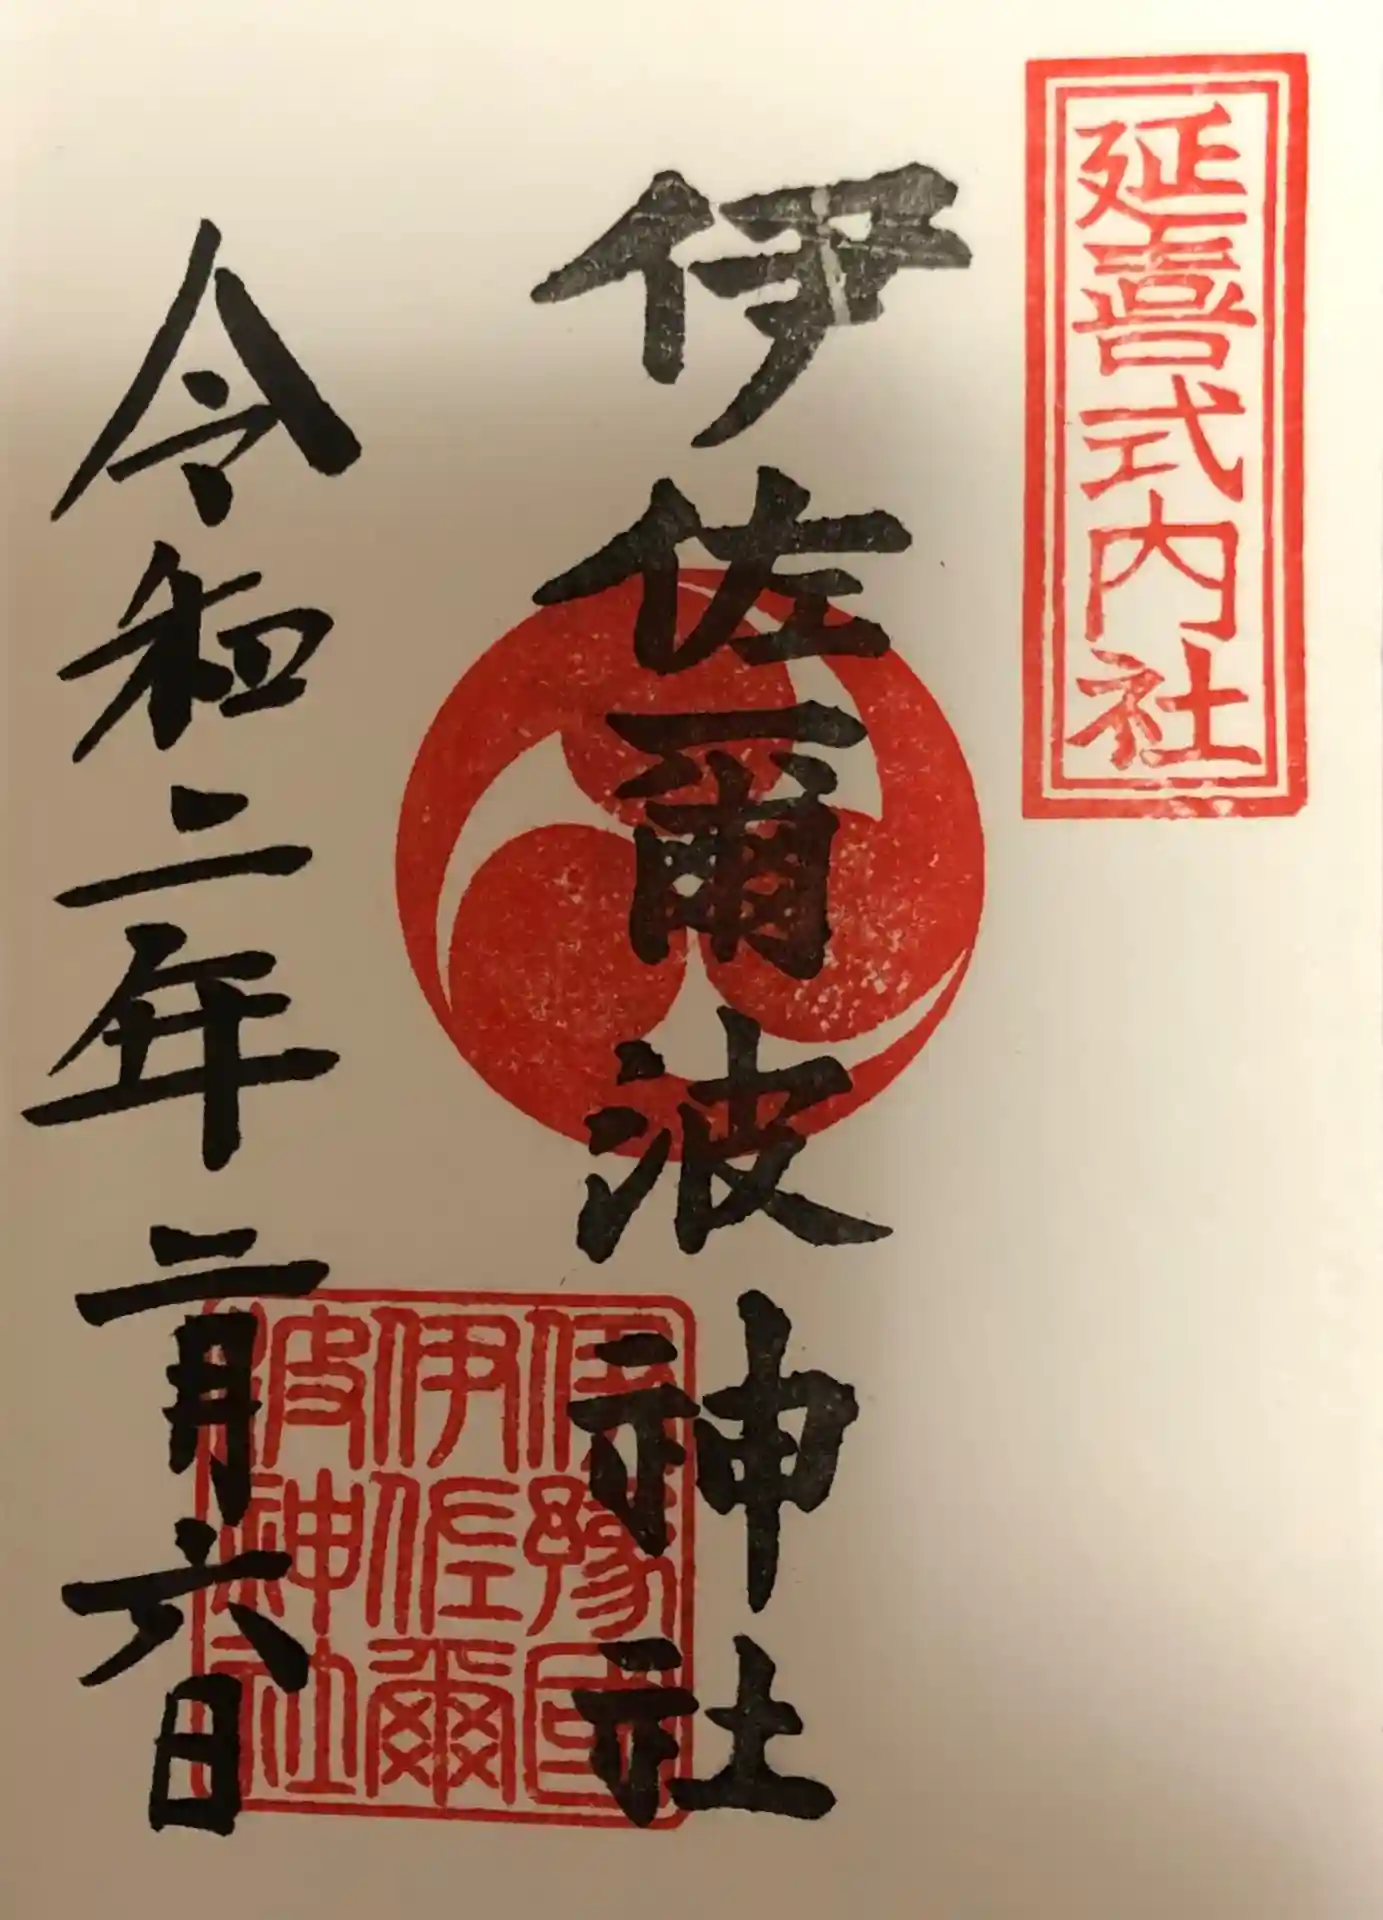 延喜式内社
伊佐爾波神社
伊豫國
伊佐爾
波神社
令和二年二月六日